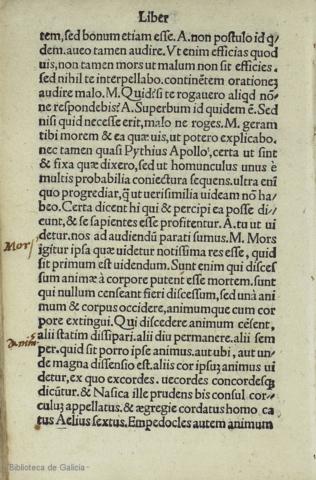 Liber
tem, sed bonum etiam esse. A. non postulo id qͥ
dem. aueo tamen audire. Vt enim efficias quod
uis, non tamen mors ut malum non sit efficies.
sed nihil te interpellabo. continētem orationeʒ
audire malo. M. Quid? si te rogauero aliqd nō-
ne respondebis? A. Superbum id quidem ē. Sed
nisi quid necesse erit, malo ne roges. M. geram
tibi morem & ea quæ uis, ut potero explicabo.
nec tamen quasi Pythius Apollo, certa ut sint
& fixa quæ dixero, sed ut homunculus unus ē
multis probabilia coniectura sequens. ultra enī
quo progrediar, q̃ ut uerisimilia uideam nō ha-
beo. Certa dicent hi qui & percipi ea posse di-
cunt, & se sapientes esse profitentur. A. tu ut ui
detur. nos ad audiendū parati sumus. M. Mors
Mors
igitur ipsa quæ uidetur notissima res esse, quid
sit primum est uidendum. Sunt enim qui disces
sum animæ à corpore putent esse mortem. sunt
qui nullum censeant fieri discessum, sed unà ani
mum & corpus occidere, animumque cum cor
pore extingui. Qui discedere animum cēsent,
alii statim dissipari. alii diu permanere. alii sem
per. quid sit porro ipse animus. aut ubi, aut un-
de magna dissensio est. aliis cor ipsuʒ animus ui
detur, ex quo excordes. uecordes concordesqʒ
dicūtur. & Nasica ille prudens bis consul cor-
culuʒ appellatus. & ægregie cordatus homo ca
tus Aelius sextus. Empedocles autem animum
Biblioteca de Galicia